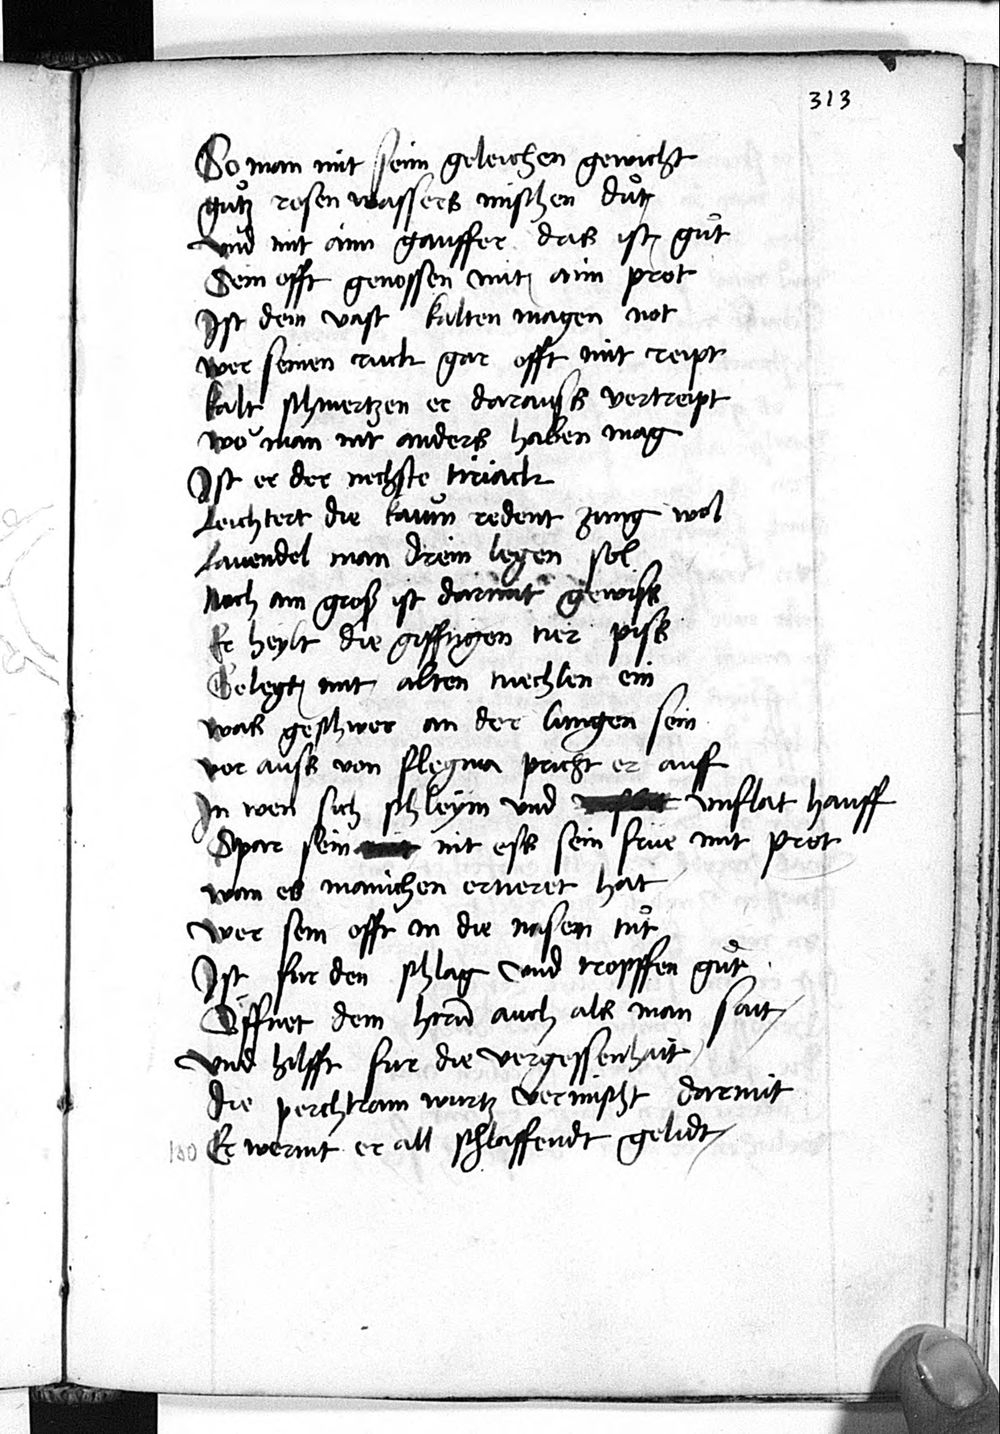 313
So man mit seim geleichen gewicht
gutz rosen wassers mischen důt
und mit aim gauffer das ist gůt
Sein offt genossen mit aim prot
Ist dem vast kalten magen not
wer seinen ruck gar offt mit reipt
kalt schmertzen er darauss vertreipt
wo man nit anders haben mag
Ist er der nechste tiriack
Leichtert die kaum redent zung wol
Lauendel man drein legen sol
Noch ain groß ist darmit gewiss
Er heylt die gifftigen tier piss
Gelegt mit alten tuechlen ein
was geschwer an der lungen sein
vor auss von flegma pricht er auff
In wen sich schleym und unflat hauff
Spar sein nit ess sein frue mit prot
wan es manichen erneret hat
Wer sein offt in die nasen tůt
Ist fur den schlag und tropffen gůt
Öffnet dem hirn auch als man sait
Und hilfft fur die vergessenhait
die perchtram wurtz vermischt darmit
100 Er wermt er all schlaffendt gelidt